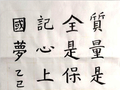 質量是
全是保
記心上
國夢乙巳